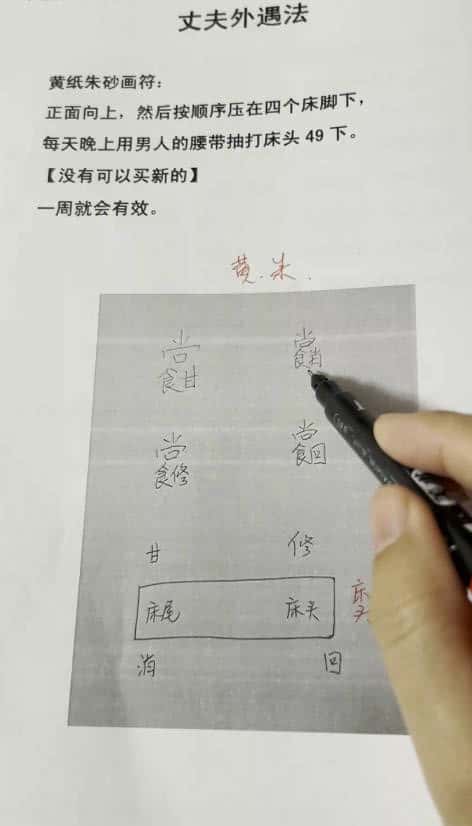 丈夫外遇法
黄纸朱砂画符：
正面向上，然后按顺序压在四个床脚下，
每天晚上用男人的腰带抽打床头 49 下。
【没有可以买新的】
一周就会有效。
黄.朱.
尚 尚
食甘 食肖
尚 尚
食修 食回
甘 修
床尾 床头 床头
消 回